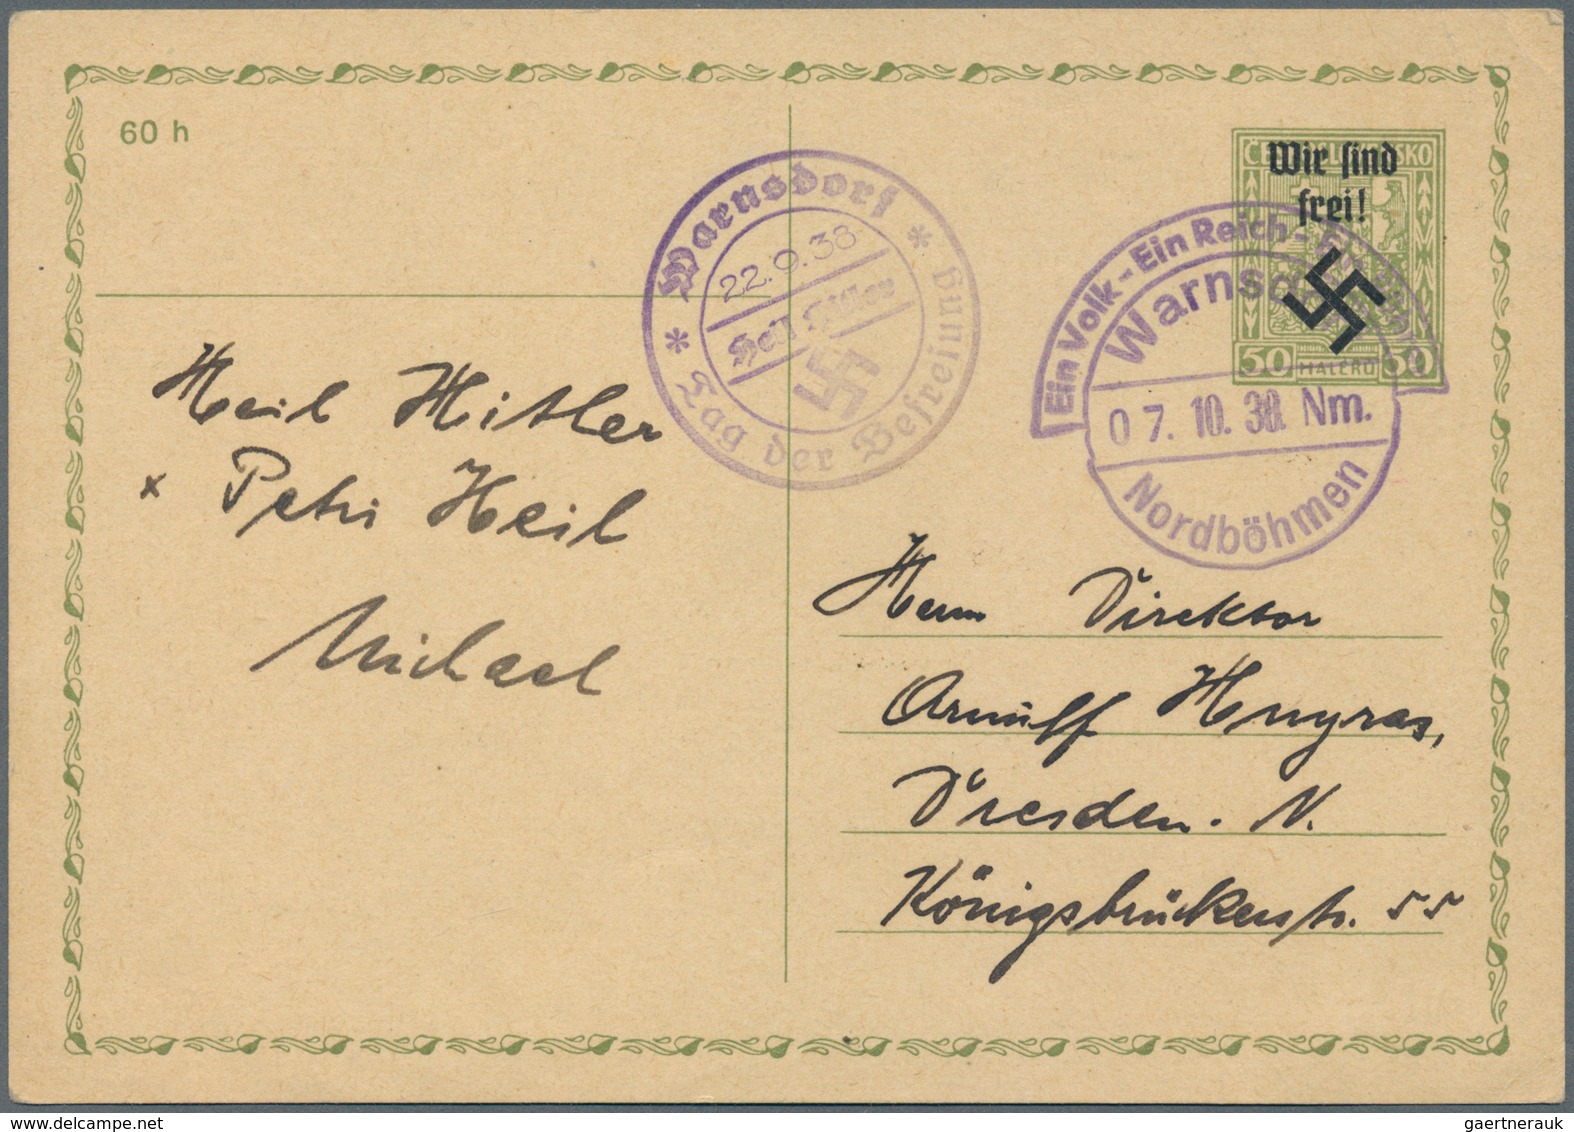 60 h
ČESKOSLOVENSKO
Wir sind
frei!
50 HALÉŘŮ 50
Warnsdorf
22.9.38
Heil Hitler
* Tag der Befreiung *
Ein Volk - Ein Reich - Ein
Warnsdorf
07.10.38. Nm.
Nordböhmen
Heil Hitler
x Petri Heil
Michael
Herrn Direktor
Arnulf Hugras,
Dresden. N.
Königsbrückerstr. 55
gaertnerauk